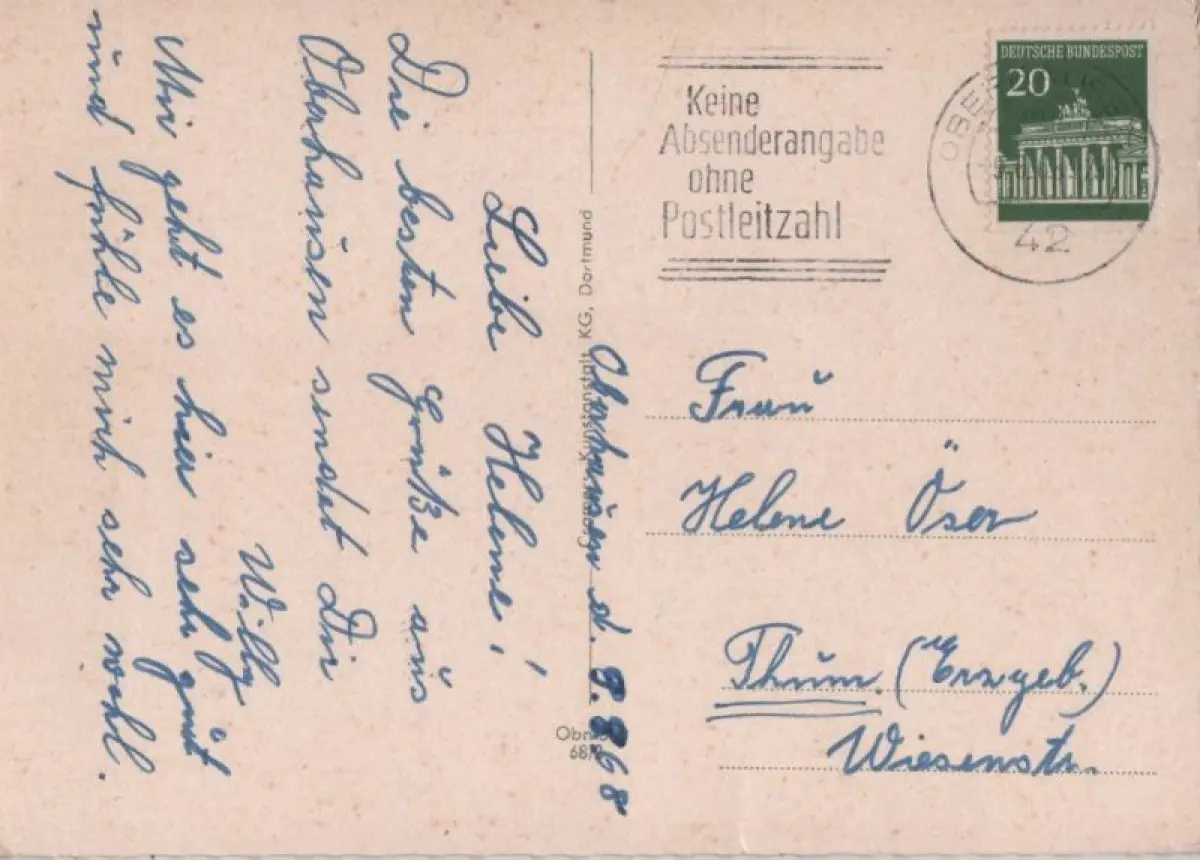 Oberhausen d. 8. 8 68
Liebe Helene!
Die besten Grüße aus
Oberhausen sendet Dir
Willy
Mir geht es hier sehr gut
und fühle mich sehr wohl.
Cramers Kunstanstalt KG, Dortmund
Keine
Absenderangabe
ohne
Postleitzahl
DEUTSCHE BUNDESPOST
20
42
Frau
Helene Öser
Thum (Erzgeb.)
Wiesenstr.